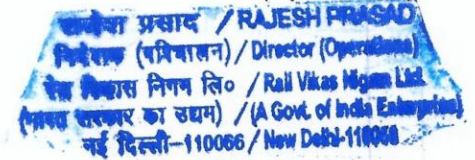 राजेश प्रसाद / RAJESH PRASAD
निदेशक (परिचालन) / Director (Operations)
रेल विकास निगम लि० / Rail Vikas Nigam Ltd.
(भारत सरकार का उद्यम) / (A Govt. of India Enterprise)
नई दिल्ली-110066 / New Delhi-110066